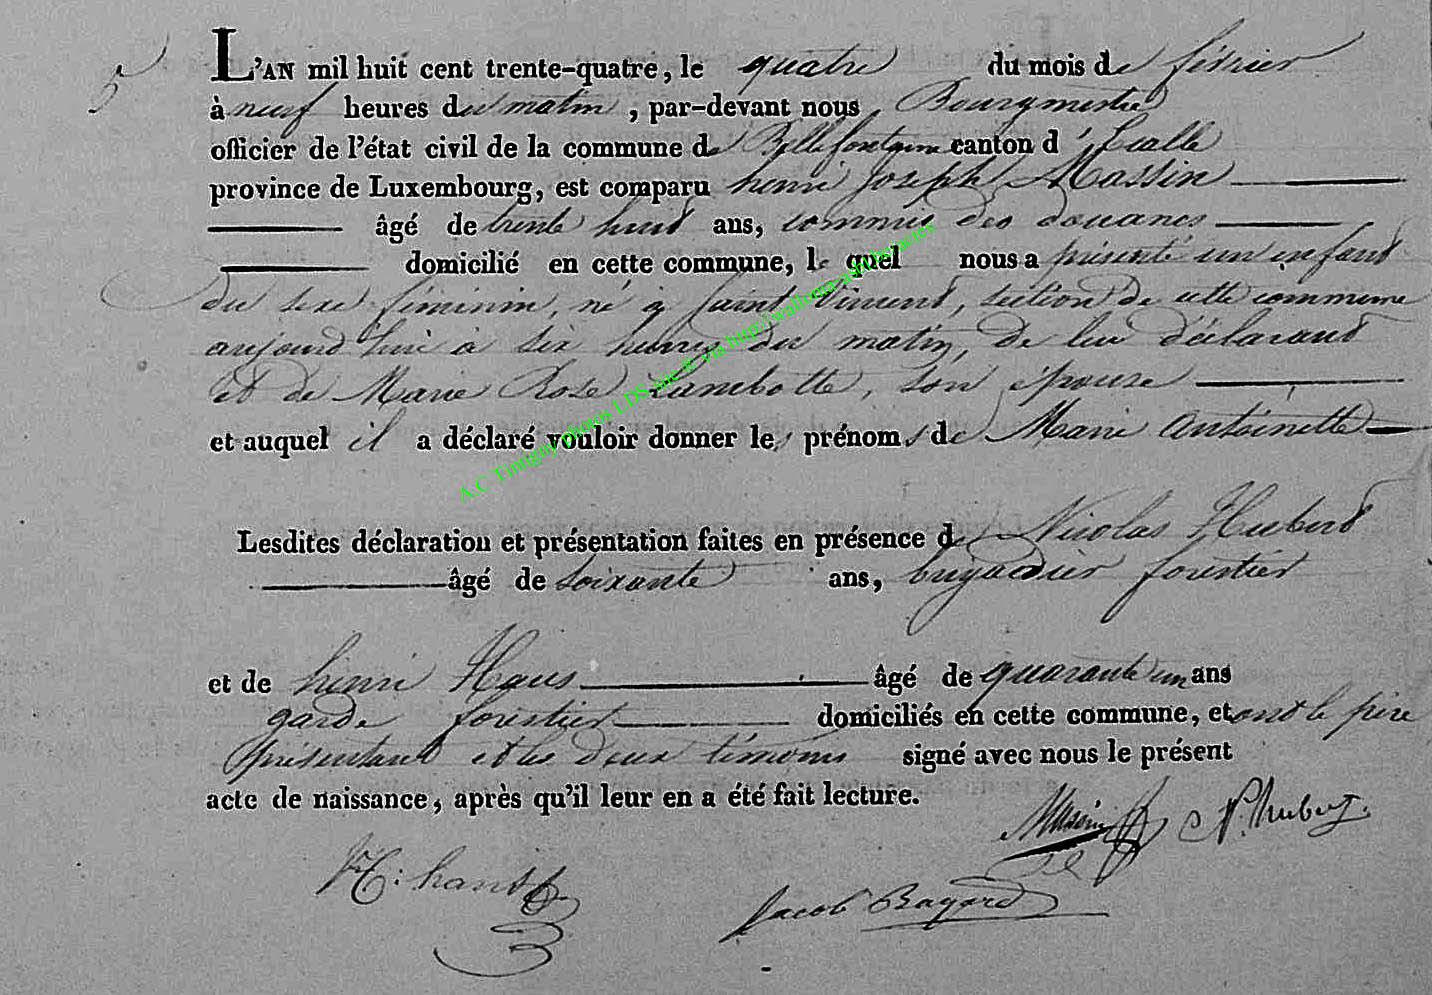 5
L'AN mil huit cent trente-quatre, le quatre du mois de février
à neuf heures du matin, par-devant nous Bourgmestre
officier de l'état civil de la commune de Bellefontaine canton d'Etalle
province de Luxembourg, est comparu henri joseph Massin
âgé de trente huit ans, commis des douanes
domicilié en cette commune, le quel nous a présenté un enfant
du sexe féminin, né à Saint Vincent, section de cette commune
aujourd'hui à six heures du matin, de lui déclarant
et de Marie Rose Lambotte, son épouse
et auquel il a déclaré vouloir donner les prénoms de Marie Antoinette
Lesdites déclaration et présentation faites en présence de Nicolas Hubert
âgé de soixante ans, brigadier forestier
et de henri Hans âgé de quarante un ans
garde forestier domiciliés en cette commune, et ont le père
présentant et les deux témoins signé avec nous le présent
acte de naissance, après qu'il leur en a été fait lecture.
Massin N. hubert
H: hans
Jacob Bagard
A.C Tintigny photos LDS, inc © via http://wallonia-asbl.be/actes